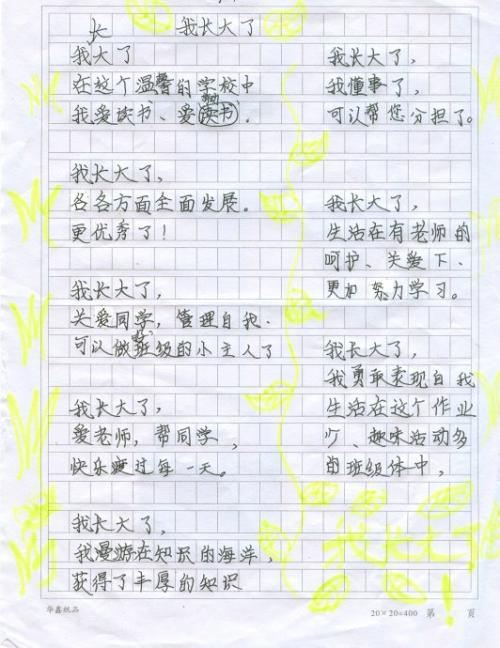 我长大了
长
我大了
在这个温馨的学校中
我爱读书、爱读书.
我长大了,
各各方面全面发展。
更优秀了!
我长大了,
关爱同学,管理自我.
可以做班级的小主人了
我长大了,
爱老师,帮同学,
快乐度过每一天。
我长大了,
我漫游在知识的海洋,
获得了丰厚的知识
我长大了,
我懂事了,
可以帮您分担了。
我长大了,
生活在有老师的
呵护、关爱下、
更加努力学习。
我长大了,
我勇敢表现自我
生活在这个作业
少、趣味活动多
的班级体中,
我长大了!
华鑫纸品
20×20=400 第 页